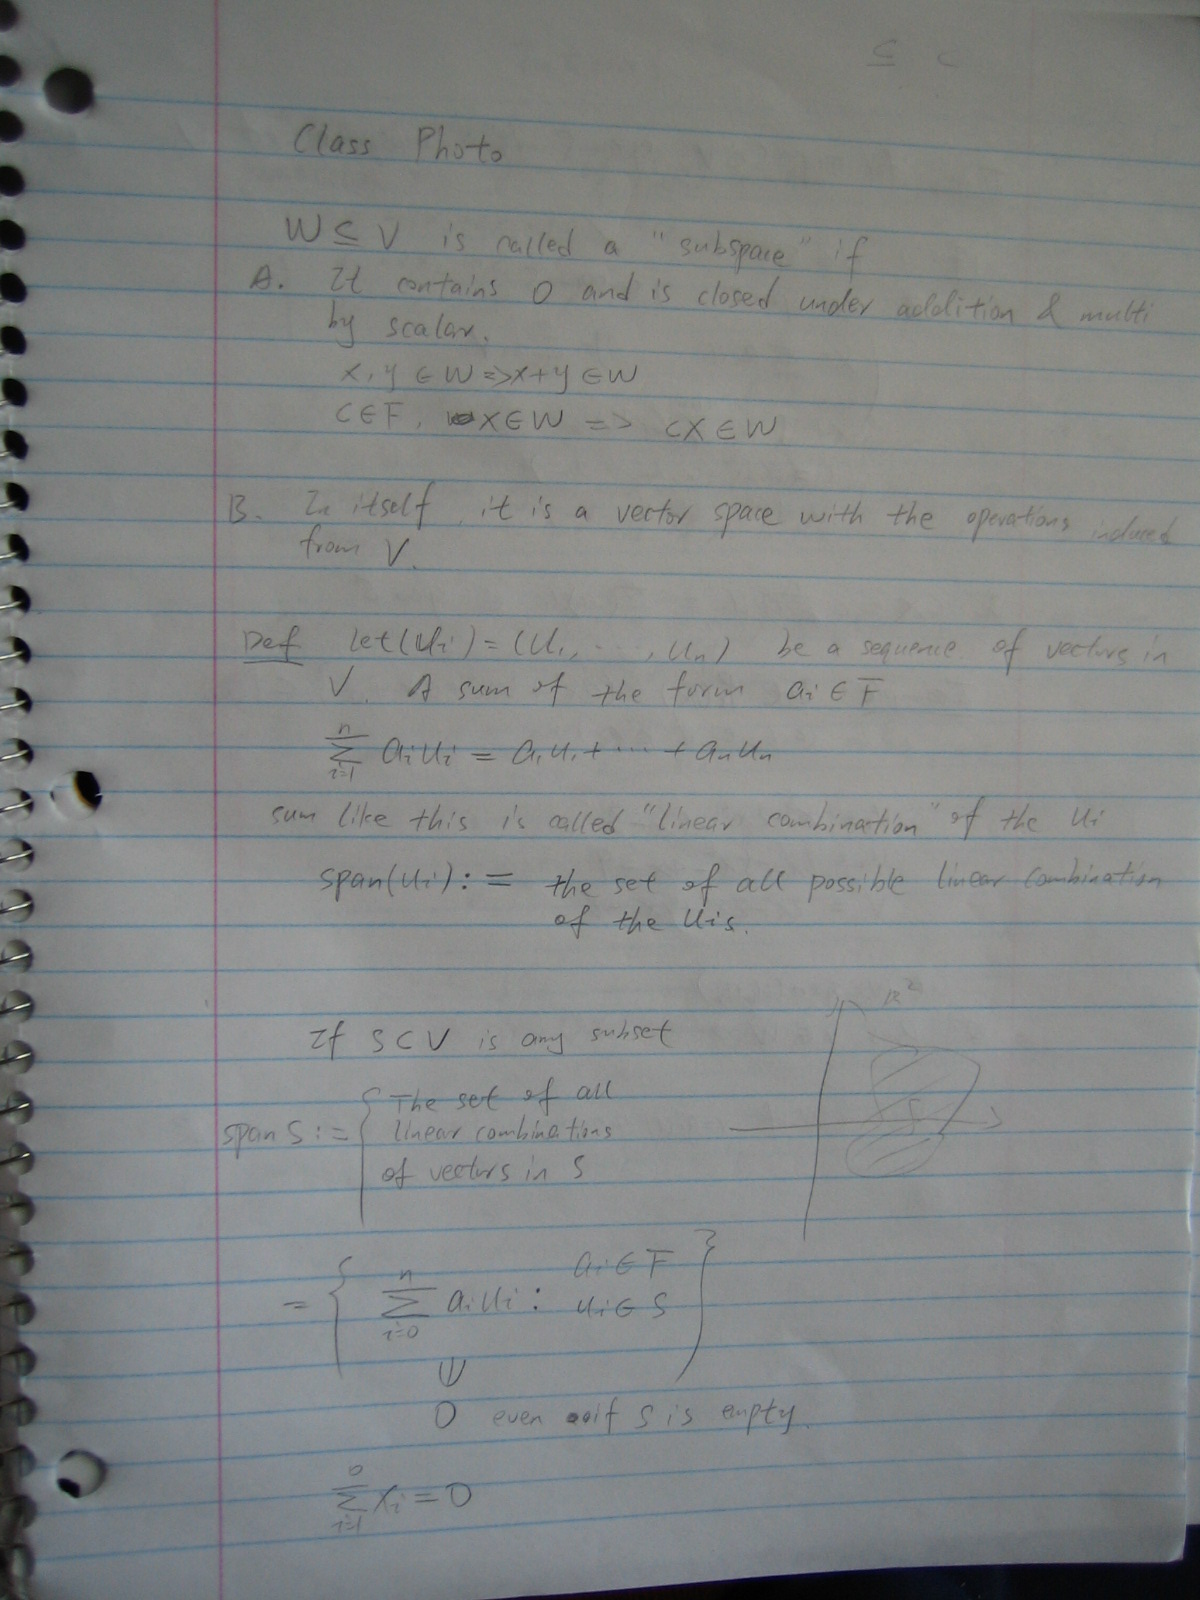 ⊆ ⊂
Class Photo
W ⊆ V is called a "subspace" if
A. It contains 0 and is closed under addition & multi
by scalar.
x, y ∈ W => x+y ∈ W
C ∈ F, x ∈ W => cx ∈ W
B. In itself, it is a vector space with the operations induced
from V.
Def let (ui) = (u1, ..., un) be a sequence of vectors in
V. A sum of the form ai ∈ F
n
∑ aiui = a1u1 + ... + anun
i=1
sum like this is called "linear combination" of the ui
span(ui) := the set of all possible linear combination
of the uis.
R²
If S ⊂ V is any subset
The set of all
span S := { linear combinations
of vectors in S
n ai ∈ F
= { ∑ aiui : ui ∈ S }
i=0
ψ
0 even if S is empty.
0
∑ xi = 0
i=1